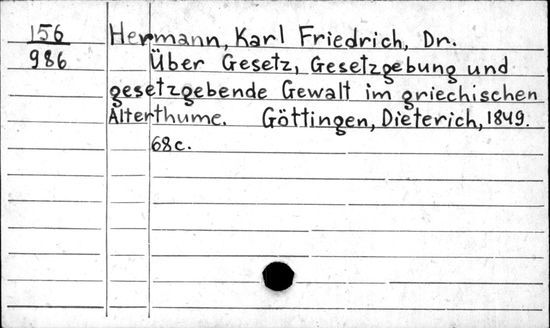 156
986
Hermann, Karl Friedrich, Dr.
Über Gesetz, Gesetzgebung und
gesetzgebende Gewalt im griechischen
Alterthume. Göttingen, Dieterich, 1849.
68c.